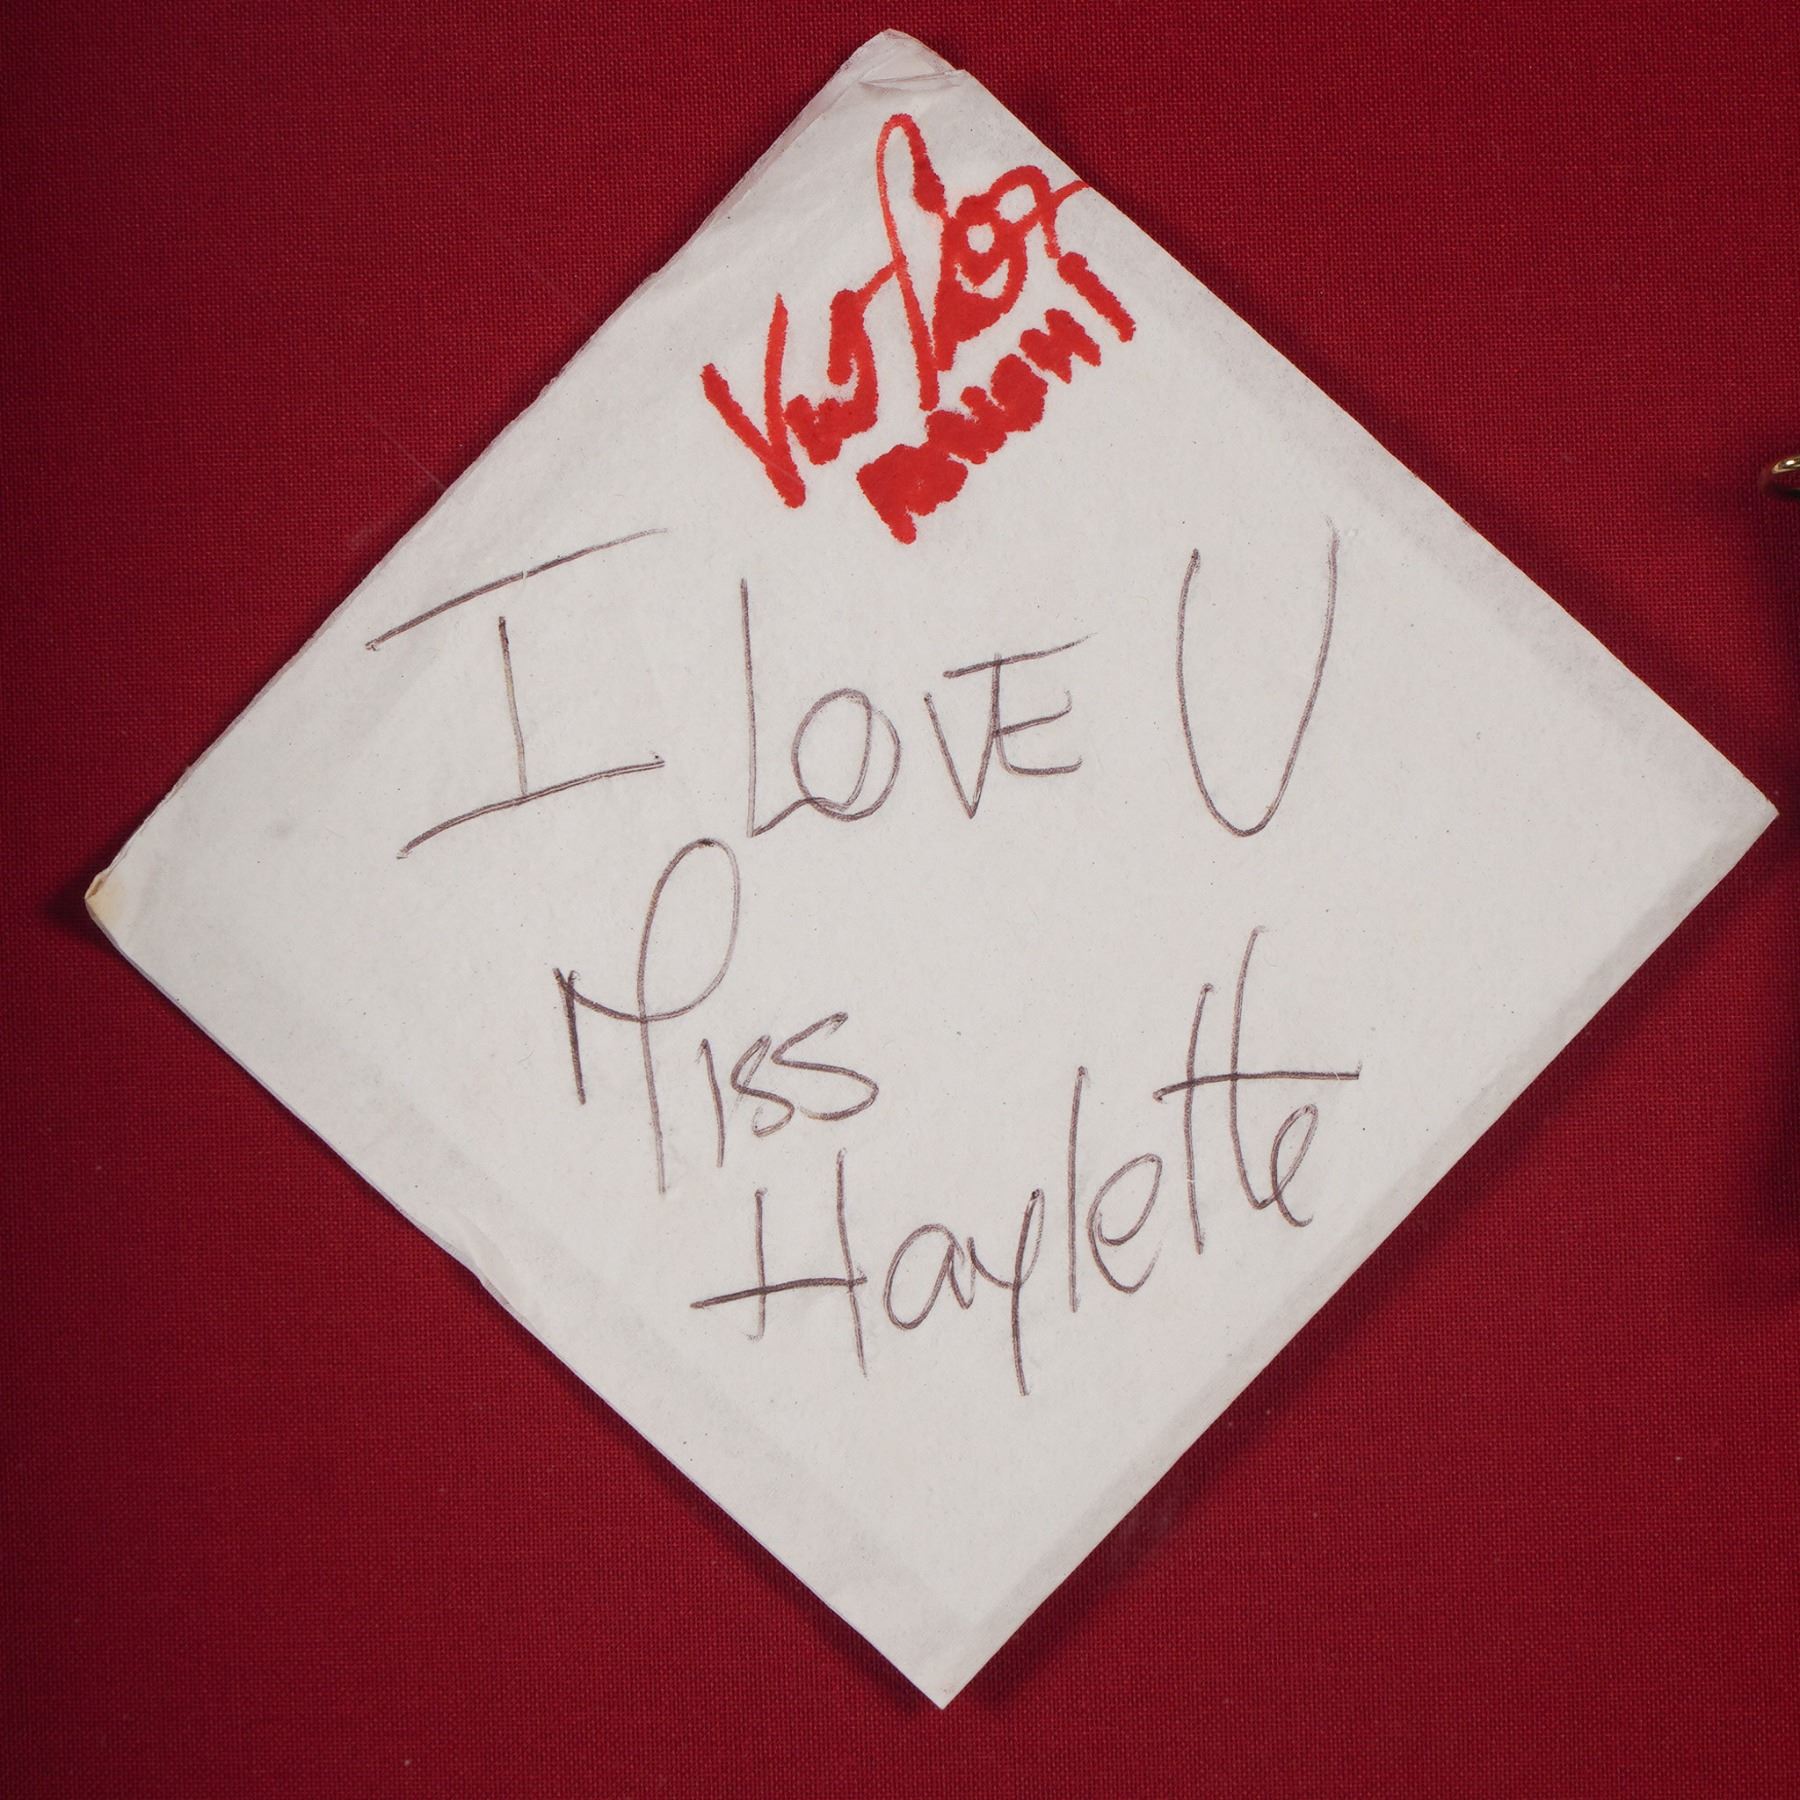 I LOVE U
Miss
Haylette